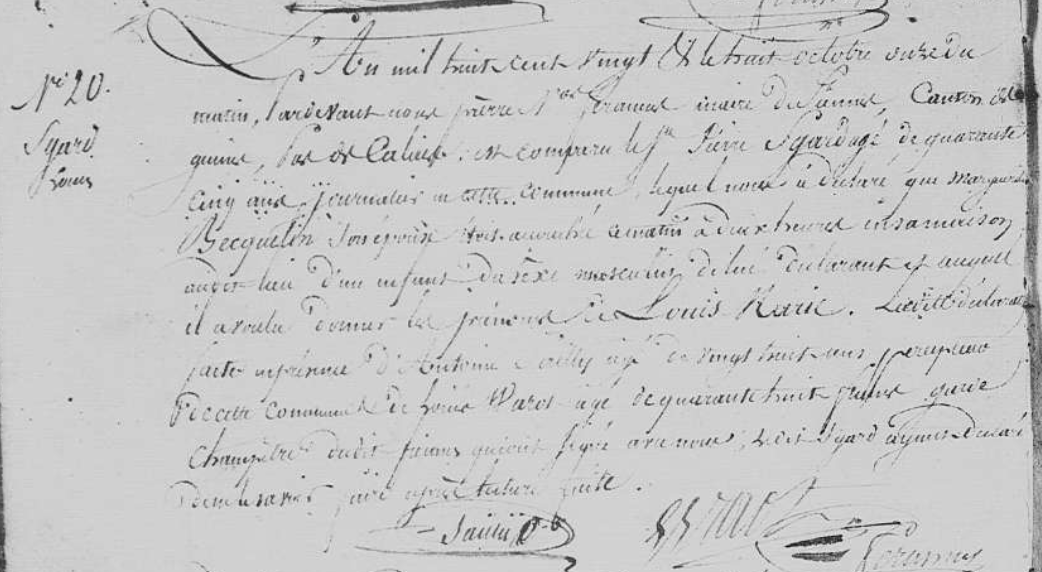 N° 20.
Sgard
Louis
L'An mil huit cent vingt & le huit octobre onze du
matin, Pardevant nous pierre N.as maire de fiennes, Canton de
guines, Pas de Calais, est comparu le S.r Pierre Sgard agé de quarante
cinq ans, journalier en cette commune, lequel nous a déclaré que marguerite
Becquelin son épouse est accouchée ce matin à deux heures en sa maison
audit lieu d'un enfant du sexe masculin de lui déclarant et auquel
il a voulu donner les prénoms de Louis Marie. Ladite déclaration
faite en présence d'Antoine Sailly agé de vingt huit ans percepteur
de cette commune & de Louis Warot agé de quarante huit ans garde
Champêtre dudit fiennes qui ont signé avec nous, ledit Sgard ayant déclaré
ne le savoir faire après lecture faite.
Sailly